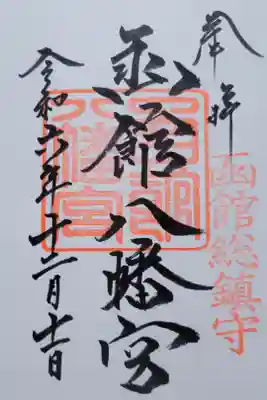 奉拝
函館総鎮守
函館八幡宮
八幡宮
令和六年十二月十一日